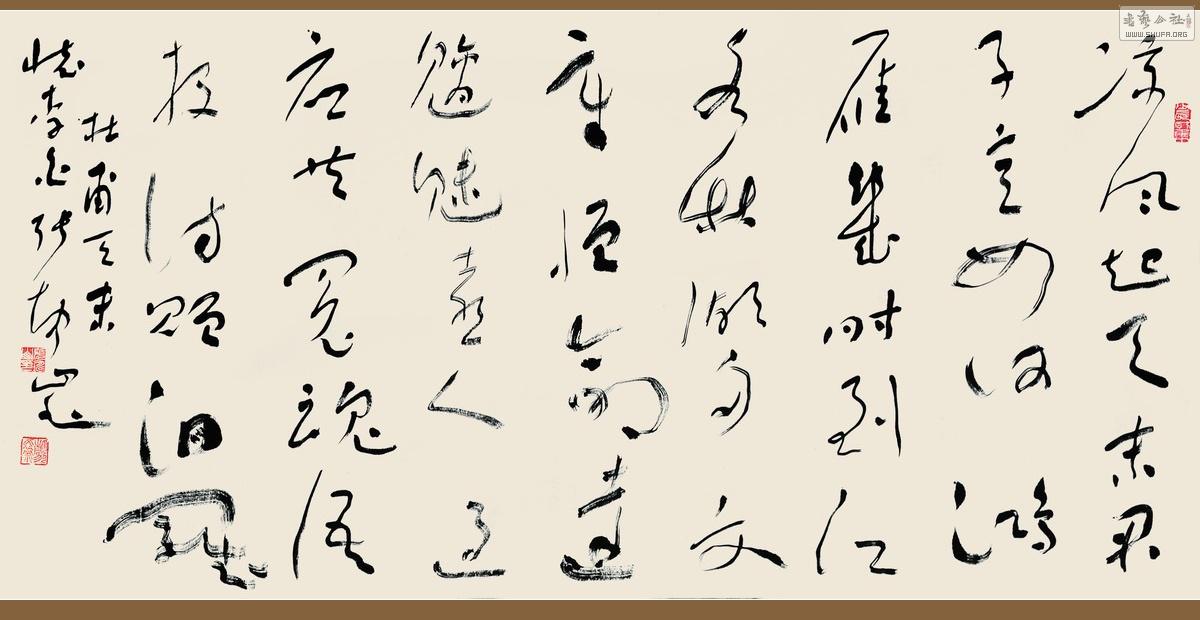 凉风起天末君
子意如何鸿
雁几时到江
湖秋水多文
章憎命达
魑魅喜人过
应共冤魂语
投诗赠汨罗
杜甫天末
怀李白
书艺公社
WWW.SHUFA.ORG